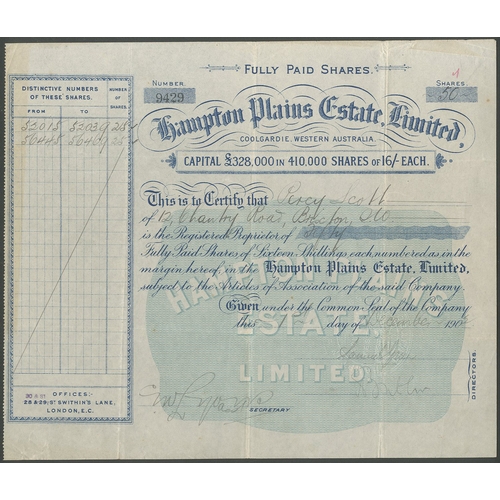 FULLY PAID SHARES.
NUMBER
9429
SHARES
50
DISTINCTIVE NUMBERS OF THESE SHARES.
NUMBER OF SHARES.
FROM
TO
52015 52039 25
56445 56469 25
Hampton Plains Estate, Limited,
COOLGARDIE, WESTERN AUSTRALIA.
CAPITAL £328,000 IN 410,000 SHARES OF 16/- EACH.
This is to Certify that Percy Scott
of 12, Chantry Road, Brixton, S.W.
is the Registered Proprietor of Fifty
Fully Paid Shares of Sixteen Shillings each numbered as in the
margin hereof, in the Hampton Plains Estate, Limited,
subject to the Articles of Association of the said Company
Given under the Common Seal of the Company
This day of 190
HAMPTON
ESTATE,
LIMITED
DIRECTORS.
SECRETARY
OFFICES:
28 & 29, ST SWITHIN'S LANE,
LONDON, E.C.